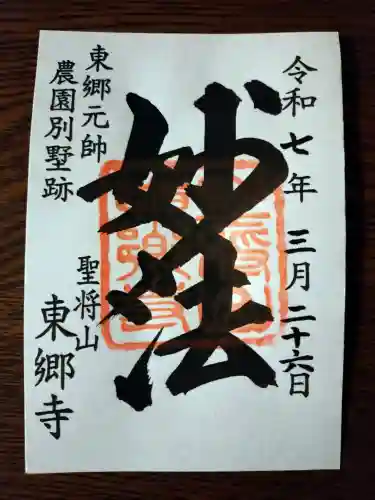 令和七年 三月二十六日
妙法
東郷元帥
農園別墅跡
聖将山
東郷寺